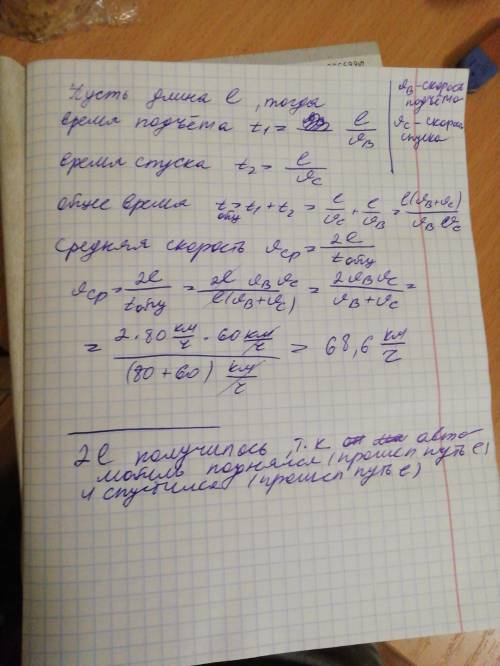 Пусть длина l, тогда
время подъёма t₁ = l/ϑ_B
ϑ_B - скорость подъёма
ϑ_C - скорость спуска
время спуска t₂ = l/ϑ_C
общее время t_общ = t₁ + t₂ = l/ϑ_C + l/ϑ_B = l(ϑ_B+ϑ_C)/ϑ_B ϑ_C
средняя скорость ϑ_ср = 2l/t_общ
ϑ_ср = 2l/t_общ = 2l ϑ_B ϑ_C/l(ϑ_B+ϑ_C) = 2ϑ_B ϑ_C/ϑ_B+ϑ_C =
= 2·80 км/ч · 60 км/ч / (80+60) км/ч = 68,6 км/ч
2l получилось, т.к авто
мобиль поднялся (прошел путь l)
и спустился (прошел путь l)